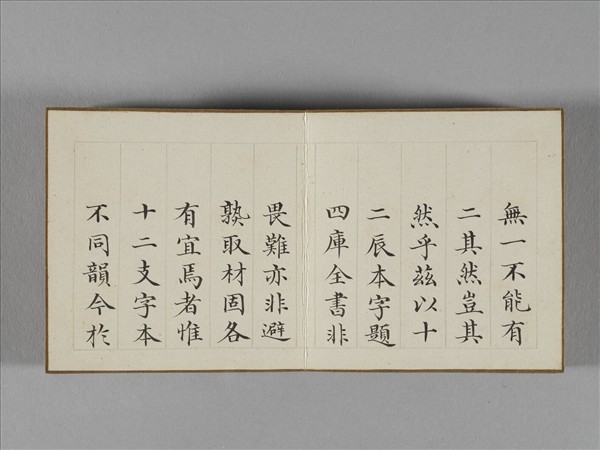 無一不能有
二其然豈其
然乎茲以十
二辰本字題
四庫全書非
畏難亦非避
熟取材固各
有宜焉者惟
十二支字本
不同韻今於